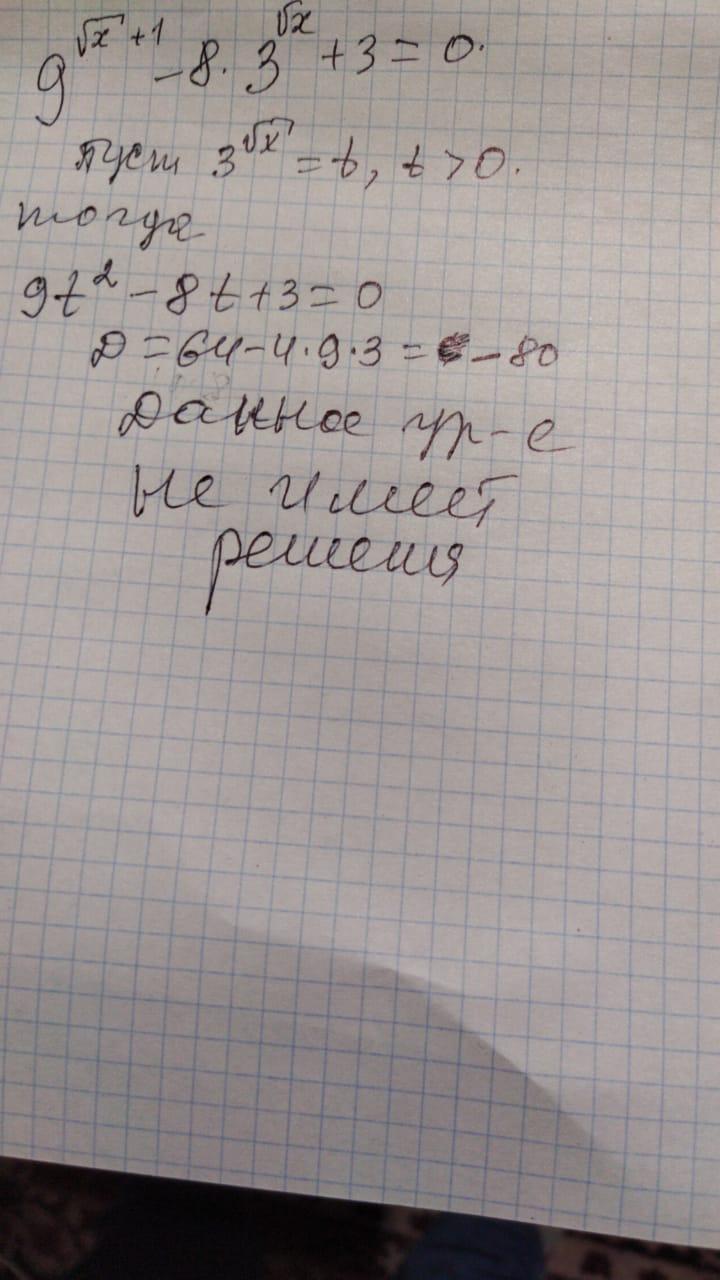 9^{√x+1} - 8 · 3^{√x} + 3 = 0.
пуст 3^{√x} = t, t > 0.
тогда
9t² - 8t + 3 = 0
D = 64 - 4·9·3 = - 80
Данное ур-е
не имеет
решения